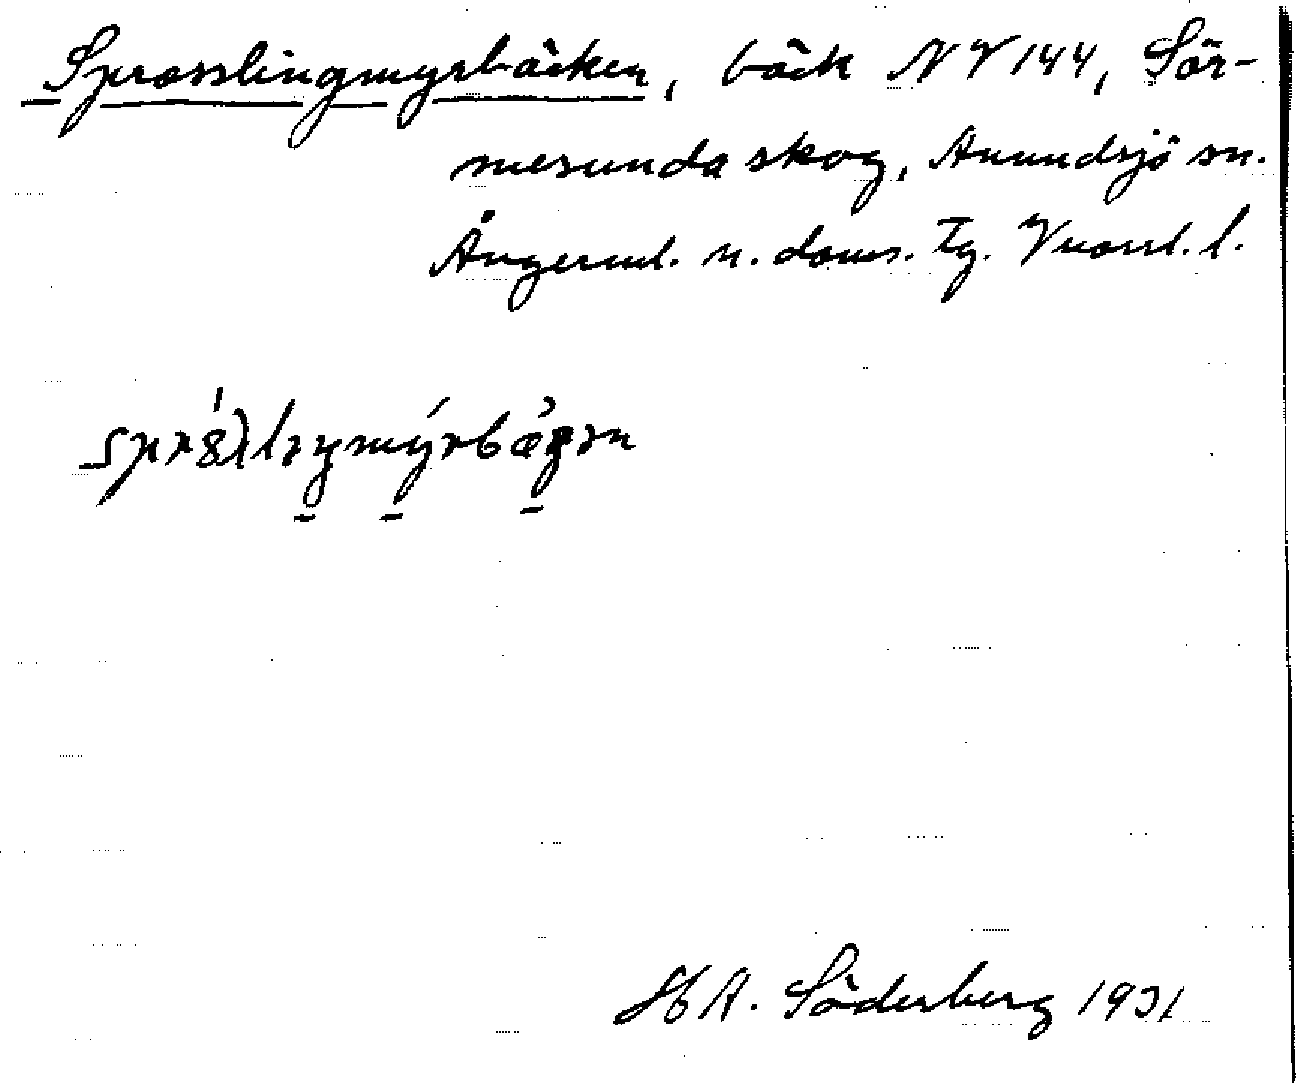 Sprosslingmyrbäcken, bäck NV 144, Sör-
mesunda skog, Anundsjö sn.
Ångerml. n. doms. Tg. Vuorsl. l.
H A. Söderberg 1931